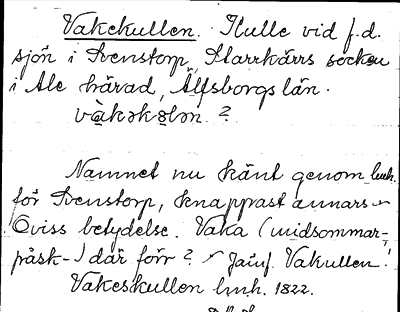 Vakekullen. Kulle vid f.d.
sjön i Svenstorp, Starrkärrs socken
i Ale härad, Älfsborgs län.
vàkəkɵlən. ?
Namnet nu känt genom lmh.
för Svenstorp, knappast annars
Oviss betydelse. Vaka (midsommar-,
påsk-) där förr? Jämf. Vakullen!
Vakeskullen lmh. 1822.